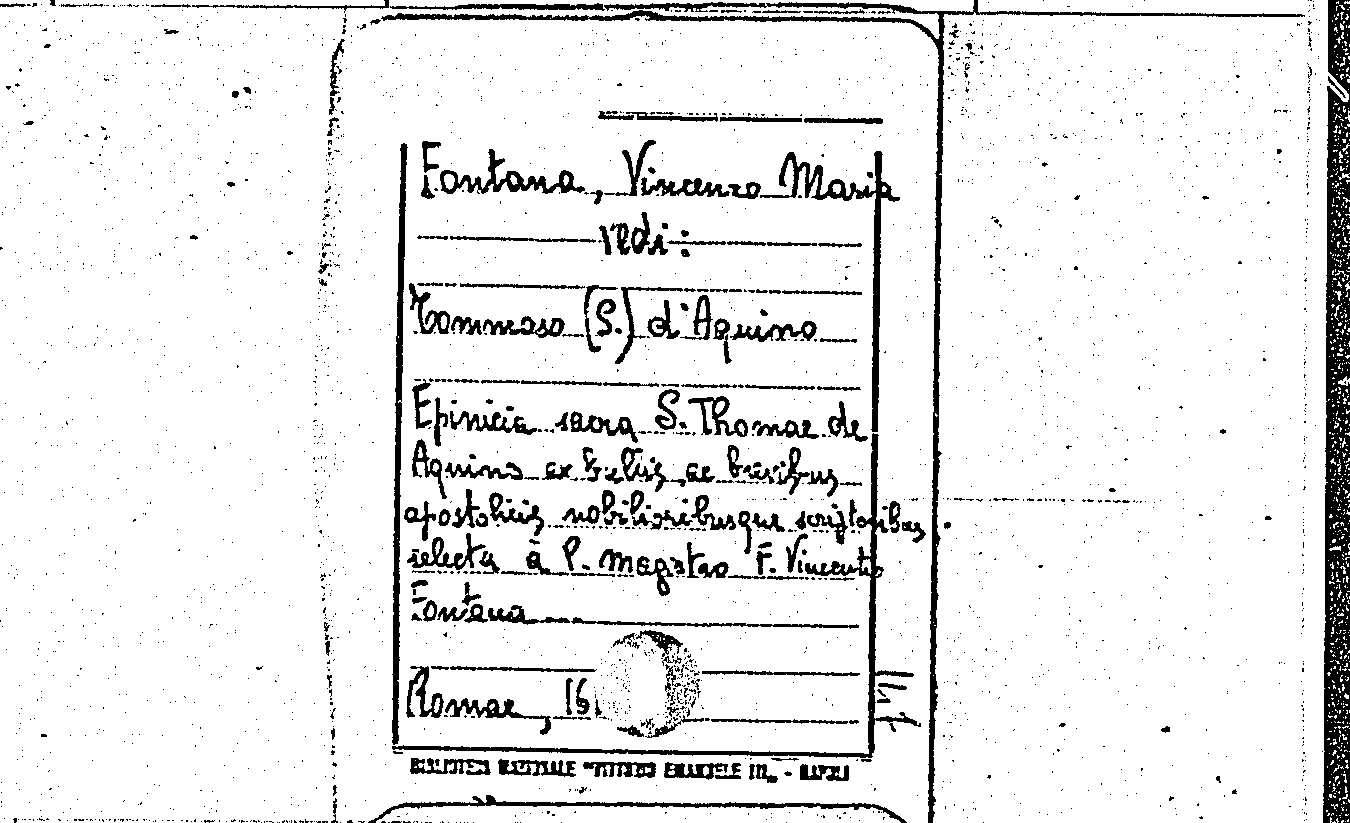 Fontana, Vincenzo Maria
vedi:
Tommaso (S.) d'Aquino
Epinicia sacra S. Thomae de
Aquino ex bullis, ac brevibus
apostolicis nobilioribusque scriptoribus
selecta à P. magistro F. Vincentio
Fontana
Romae, 16
BIBLIOTECA NAZIONALE "VITTORIO EMANUELE III" - NAPOLI